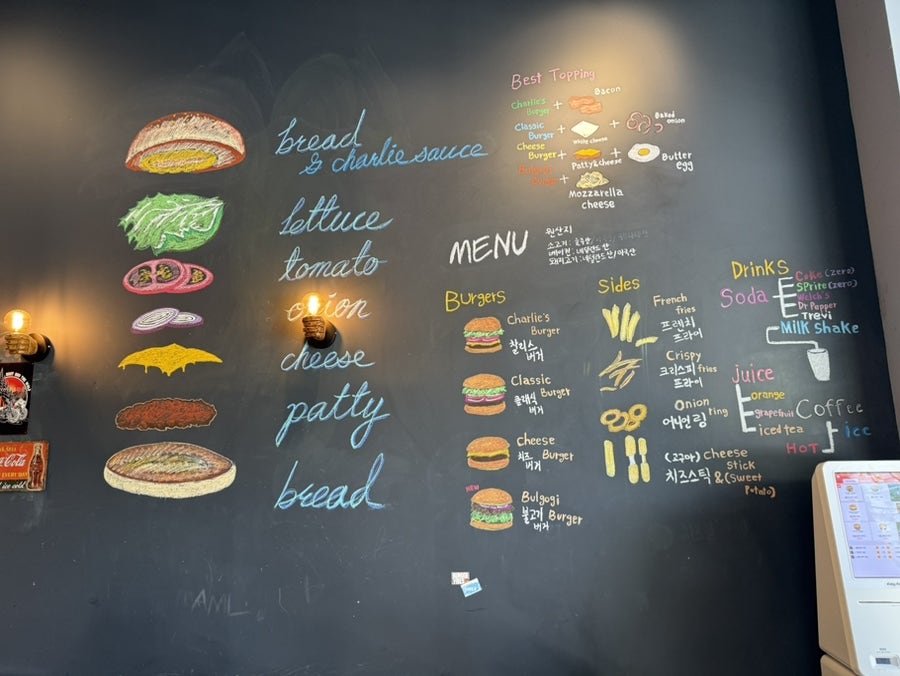 bread
& charlie sauce
lettuce
tomato
onion
cheese
patty
bread
Best Topping
Charlie's
Burger
+
Bacon
Classic
Burger
+
White cheese
+
Baked
onion
Cheese
Burger
+
Patty&cheese
Butter
egg
Bulgogi
Burger
+
Mozzarella
cheese
MENU
원산지
소고기 : 호주산
베이컨 : 네덜란드산
돼지고기 : 네덜란드산/미국산
Burgers
Charlie's
Burger
찰리스
버거
Classic
Burger
클래식
버거
Cheese
Burger
치즈
버거
NEW
Bulgogi
Burger
불고기
버거
Sides
French
fries
프렌치
프라이
Crispy
fries
크리스피
프라이
Onion
ring
어니언 링
(고구마) Cheese
Stick
치즈스틱 & (Sweet
Potato)
Drinks
Soda
Coke (zero)
Sprite (zero)
Welch's
Dr Pepper
Trevi
Milk Shake
juice
orange
grapefruit
iced tea
Coffee
HOT
ice
Coca-Cola
ice cold
AML